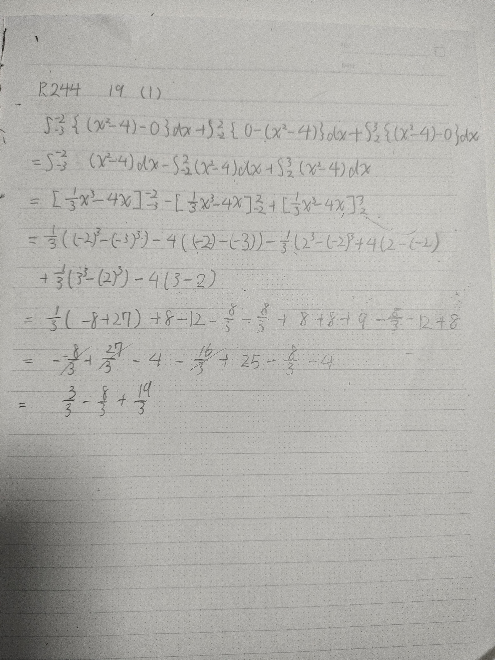 P.244 19 (1)
∫₋₃⁻² { (x²-4)-0 } dx + ∫₋₂² { 0-(x²-4) } dx + ∫₂³ { (x²-4)-0 } dx
= ∫₋₃⁻² (x²-4) dx - ∫₋₂² (x²-4) dx + ∫₂³ (x²-4) dx
= [ 1/3 x³-4x ]₋₃⁻² - [ 1/3 x³-4x ]₋₂² + [ 1/3 x³-4x ]₂³
= 1/3 ((-2)³-(-3)³) - 4 ((-2)-(-3)) - 1/3 (2³-(-2)³ + 4(2-(-2)
+ 1/3 (3³-(2)³) - 4 (3-2)
= 1/3 ( -8+27) + 8-12 - 8/3 - 8/3 + 8+8+9 - 8/3 - 12+8
= - 8/3 + 27/3 - 4 - 16/3 + 25 - 8/3 - 4
= 3/3 - 8/3 + 19/3